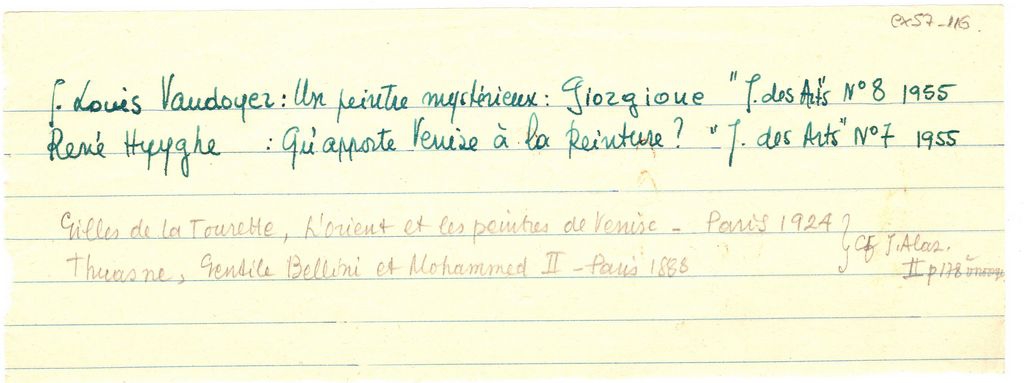 cx57-116.
J. Louis Vaudoyer : Un peintre mystérieux : Giorgione "J. des Arts" N° 8 1955
René Huyghe : Qu'apporte Venise à la Peinture ? "J. des Arts" N° 7 1955
Gilles de la Tourette, L'orient et les peintres de Venise - Paris 1924
Thuasne, Gentile Bellini et Mohammed II - Paris 1888
} Cf J. Alaz.
II p 178